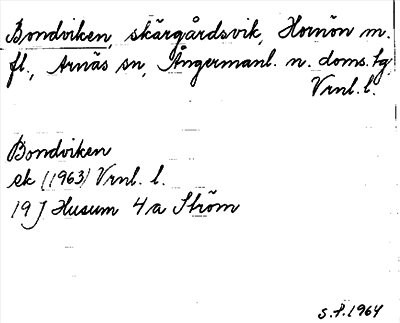 Bondviken, skärgårdsvik, Hornön m.
fl., Arnäs sn, Ångermanl. n. doms. tg
Vrnl. l.
Bondviken
ek (1963) Vrnl. l.
19 J Husum 4a Ström
S.F. 1964